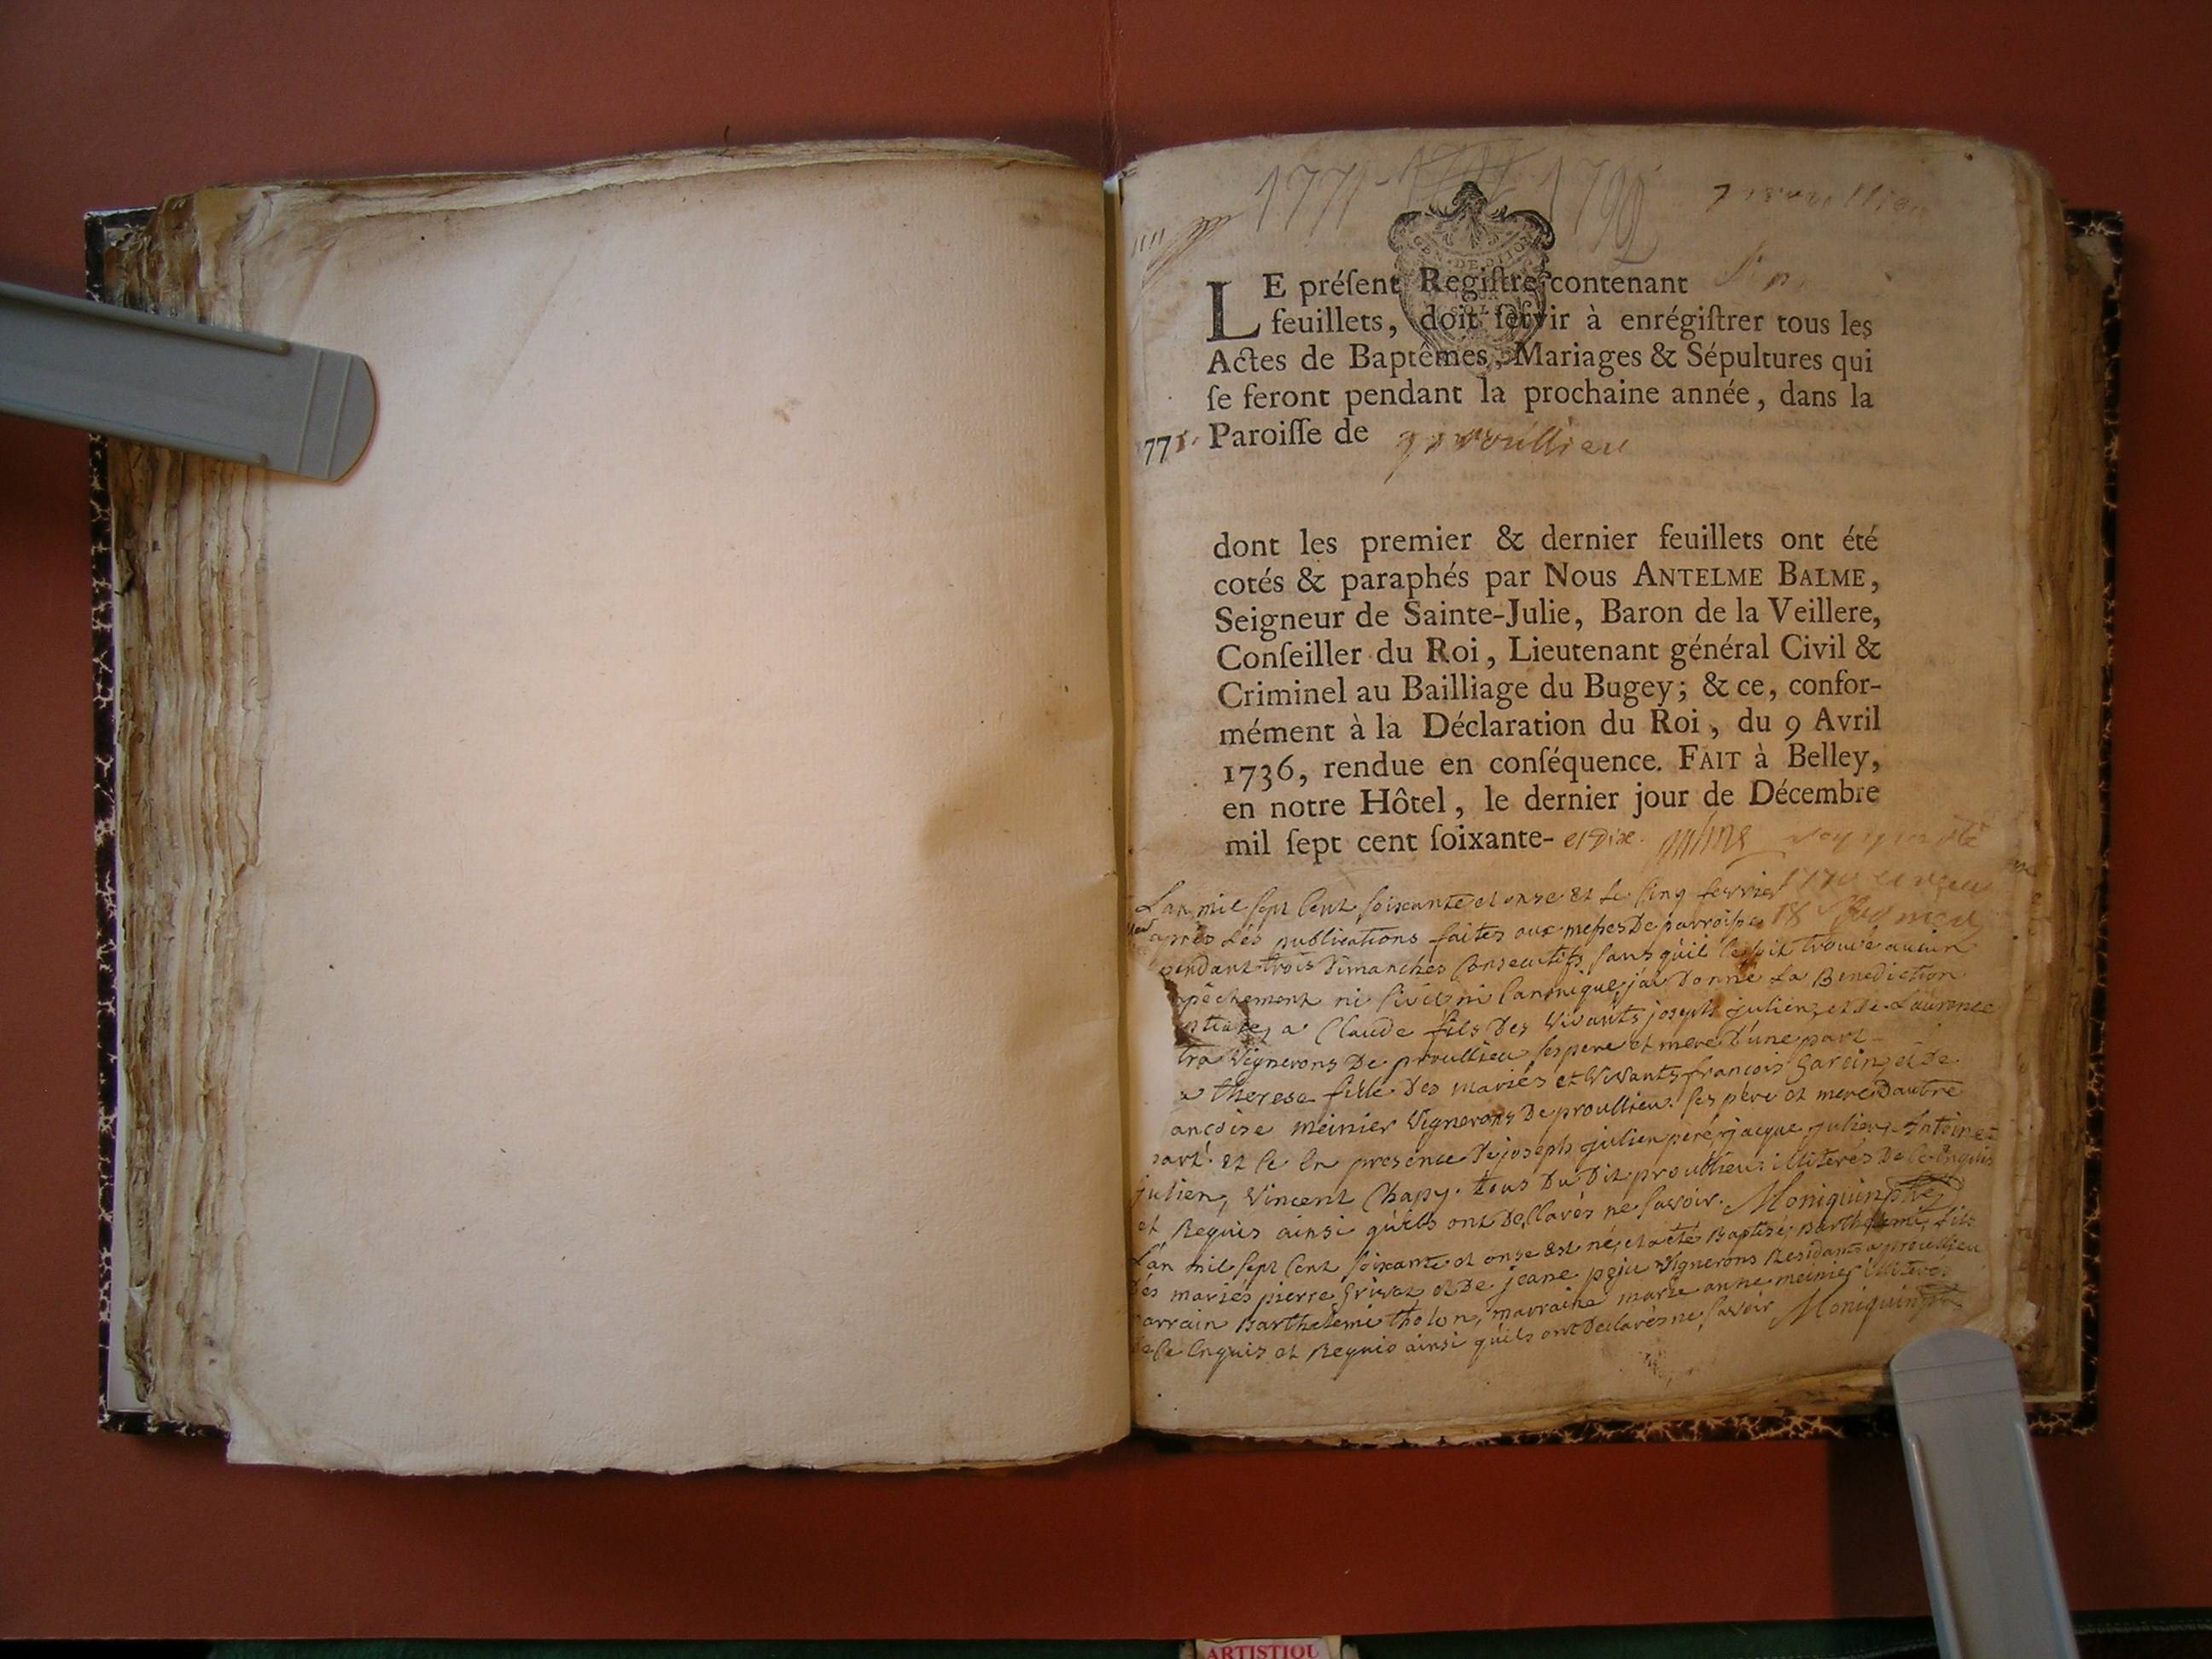 1771 - 1792
LE préſent Regiſtre contenant
feuillets, doit ſervir à enrégiſtrer tous les
Actes de Baptêmes, Mariages & Sépultures qui
ſe feront pendant la prochaine année, dans la
1771. Paroiſſe de proullieu
dont les premier & dernier feuillets ont été
cotés & paraphés par Nous ANTELME BALME,
Seigneur de Sainte-Julie, Baron de la Veillere,
Conſeiller du Roi, Lieutenant général Civil &
Criminel au Bailliage du Bugey; & ce, confor-
mément à la Déclaration du Roi, du 9 Avril
1736, rendue en conſéquence. FAIT à Belley,
en notre Hôtel, le dernier jour de Décembre
mil ſept cent ſoixante- et Dix.
L'an mil sept cent soixante et onse et le cinq fevrier
après les publications faites aux messes De parroisse
pendant trois Dimanches consecutifs sans qu'il se soit trouvé aucun
pêchement ni civil ni canonique, j'ai Donné la Benediction
a Claude fils Des vivants joseph julien, et de Laurence
tra vignerons De proullieu ses pere et mere D'une part
a therese fille Des mariés et vivants françois Garein, et De
ançoise meinier vignerons De proullieu ses père et mere Dautre
part. et ce en presence De joseph julien père, jacque julien, Antoine
julien, vincent Chapy. tous Du Dit proullieu illiterés De ce enquis
et Requis ainsi qu'ils ont Declarés ne savoir. Moniquin ptre
L'an mil sept cent soixante et onse est né, et a été Baptisé, Barthelemi, fils
Des mariés pierre Grivaz et De jeane peju vignerons Residants a proullieu
parrain Barthelemi tholon, marraine marie anne meinier illiteres
de ce enquis et Requis ainsi qu'ils ont Declarés ne savoir Moniquin ptre
ARTISTIQU